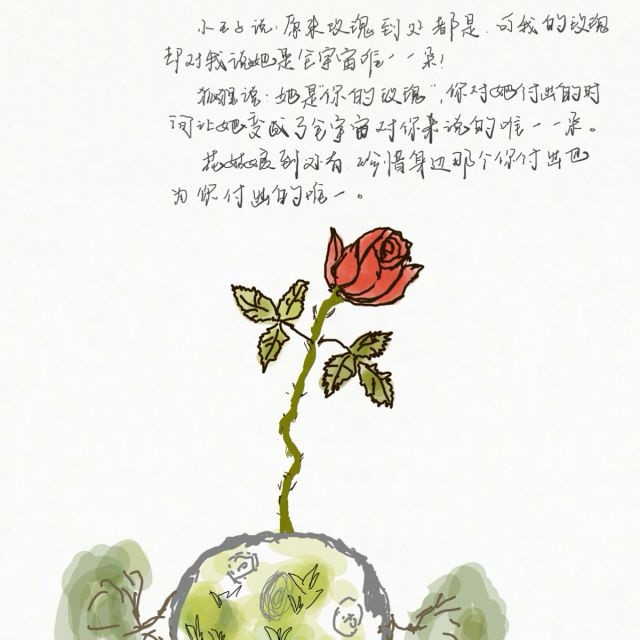 小王子说:原来玫瑰到处都是.可我的玫瑰
却对我说她是全宇宙唯一一朵!
狐狸说:她是你的玫瑰",你对她付出的时
间让她变成了全宇宙对你来说的唯一一朵。
花
到处有.珍惜身边那个你付出也
为你付出的唯一。